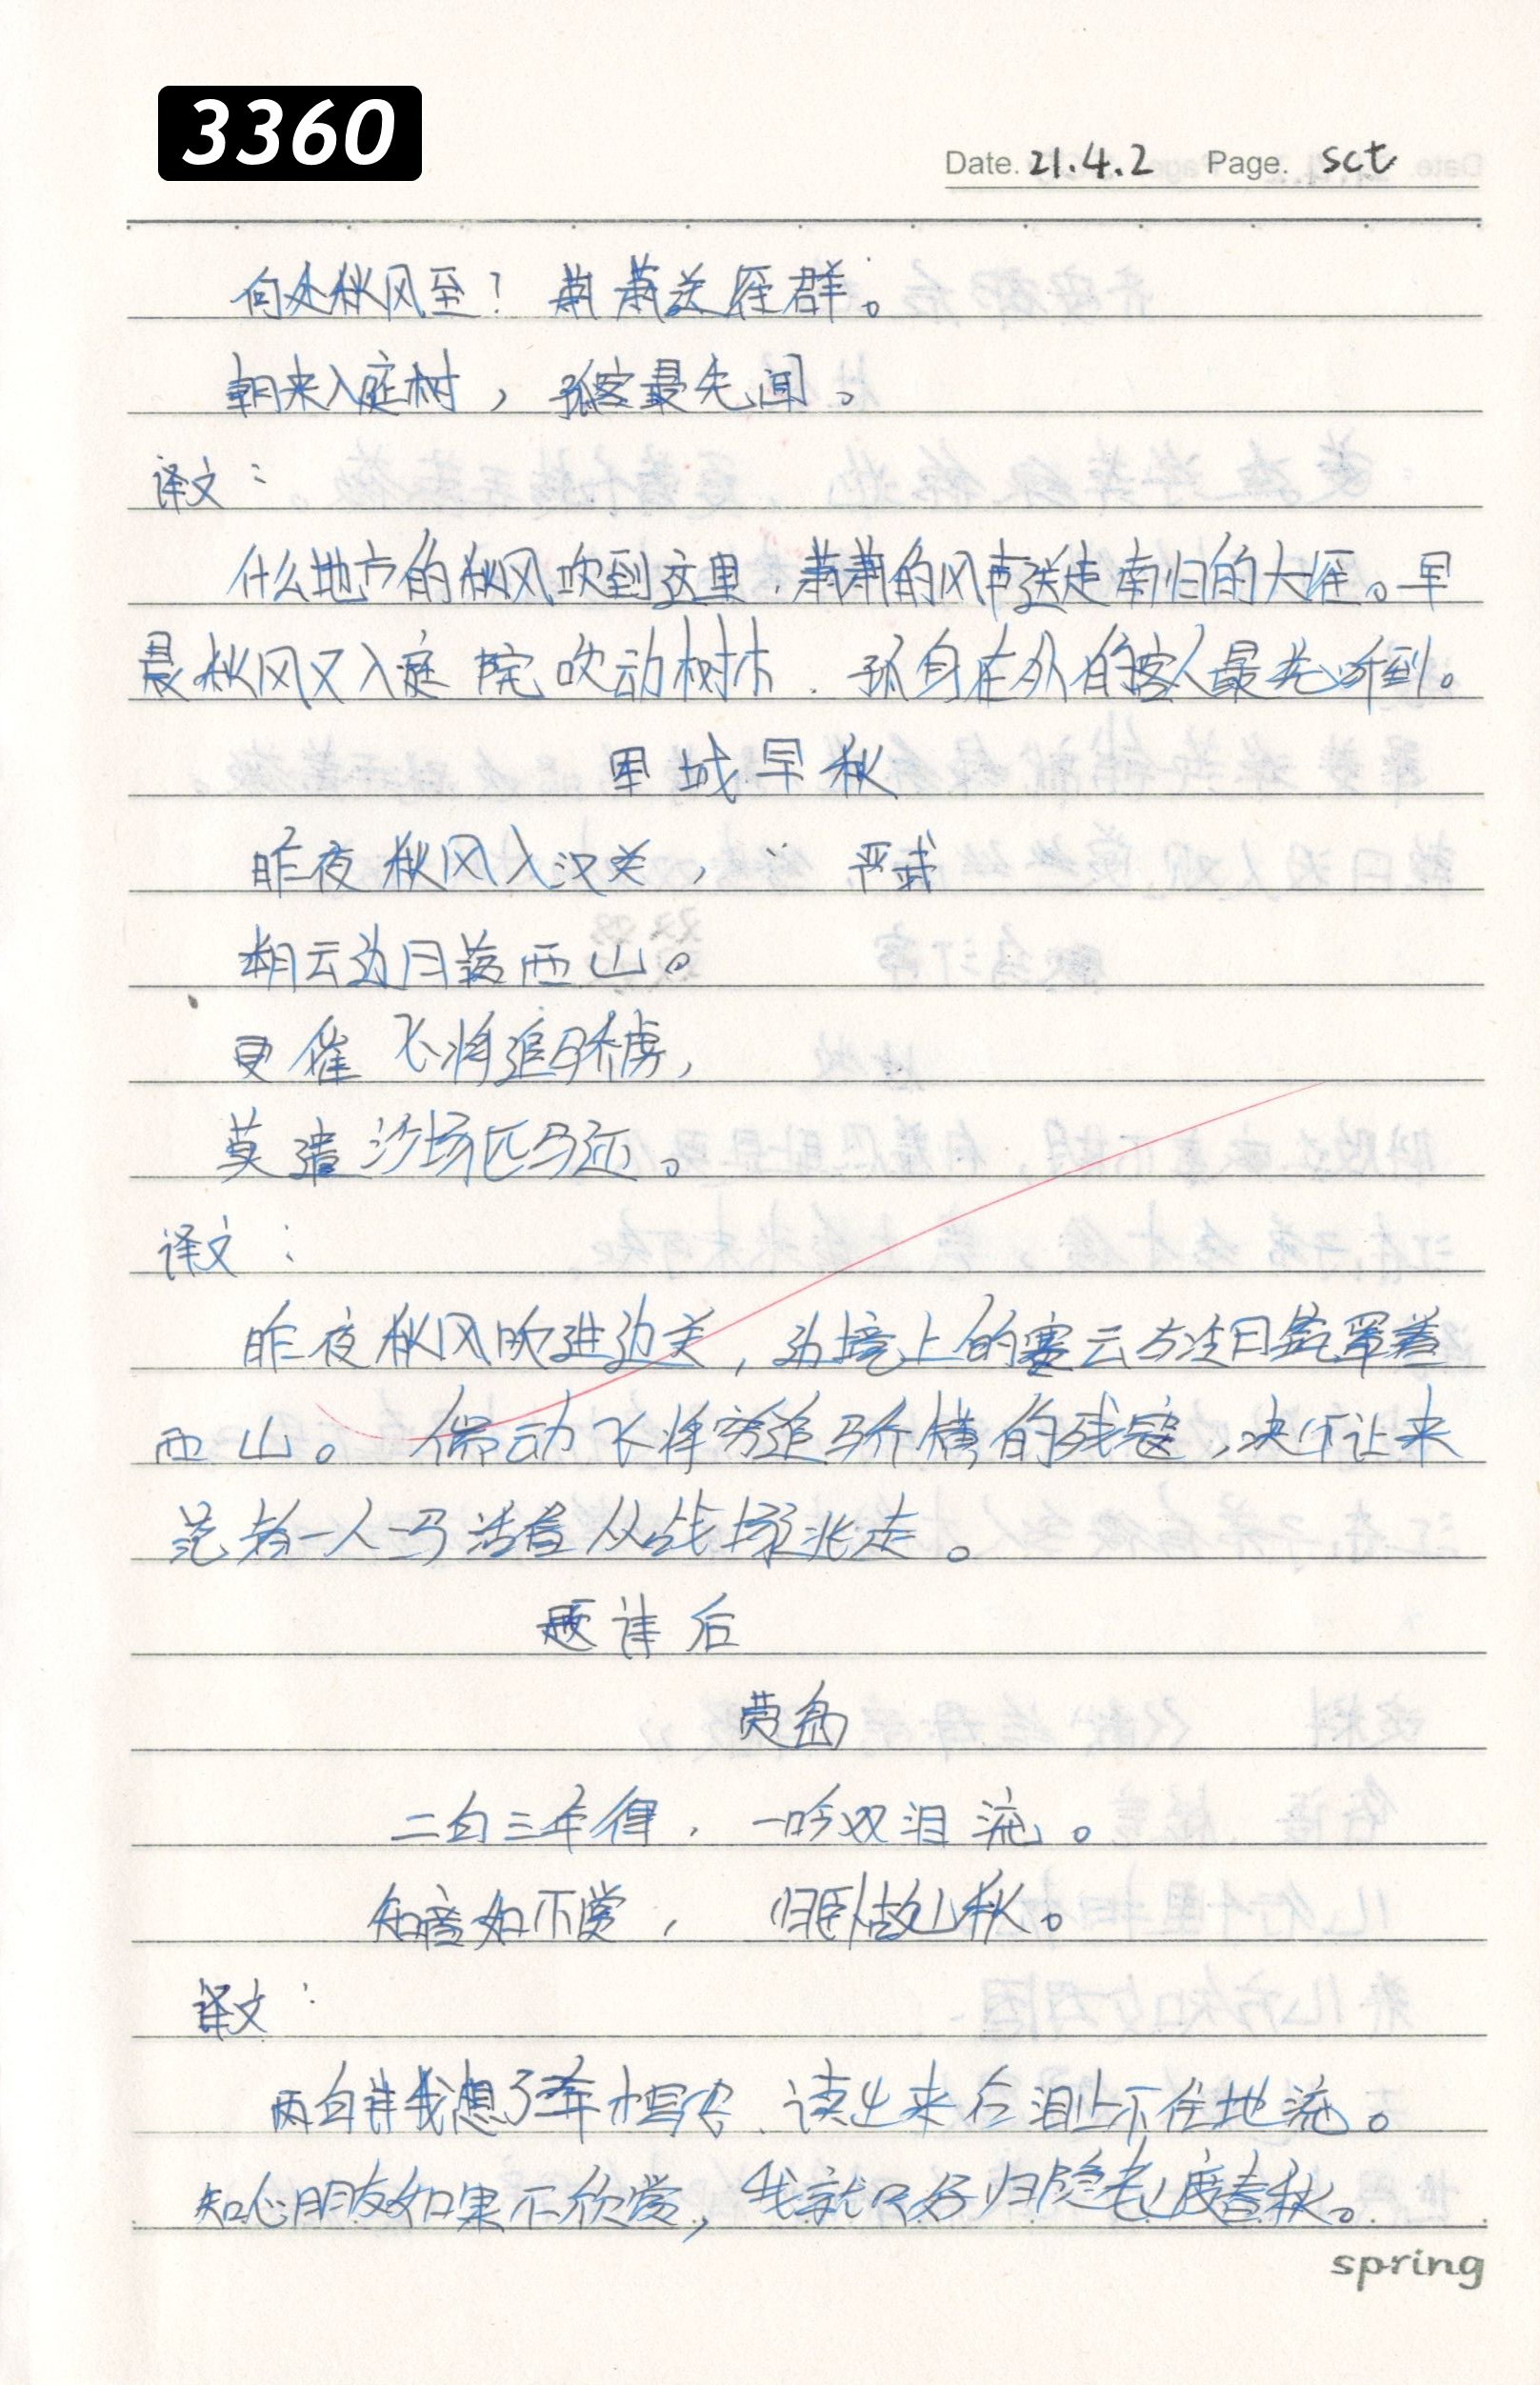 3360
Date. 21.4.2 Page. sct
何处秋风至？萧萧送雁群。
朝来入庭树，孤客最先闻。
译文：
什么地方的秋风吹到这里，萧萧的风声送走南归的大雁。早
晨秋风又入庭院吹动树木．孤身在外的客人最先听到。
军城早秋
昨夜秋风入汉关， 严武
朔云边月落西山。
更催飞将追骄虏，
莫遣沙场匹马还。
译文：
昨夜秋风吹进边关，边境上的寒云与冷月笼罩着
西山。催动飞将穷追骄横的残寇，决不让来
范者一人一马活着从战场逃走。
题诗后
贾岛
二句三年得，一吟双泪流。
知音如不赏，归卧故山秋。
译文：
两句诗我想了三年才写出、读出来后泪止不住地流。
知心朋友如果不欣赏，我就只好归隐老山度春秋。
spring